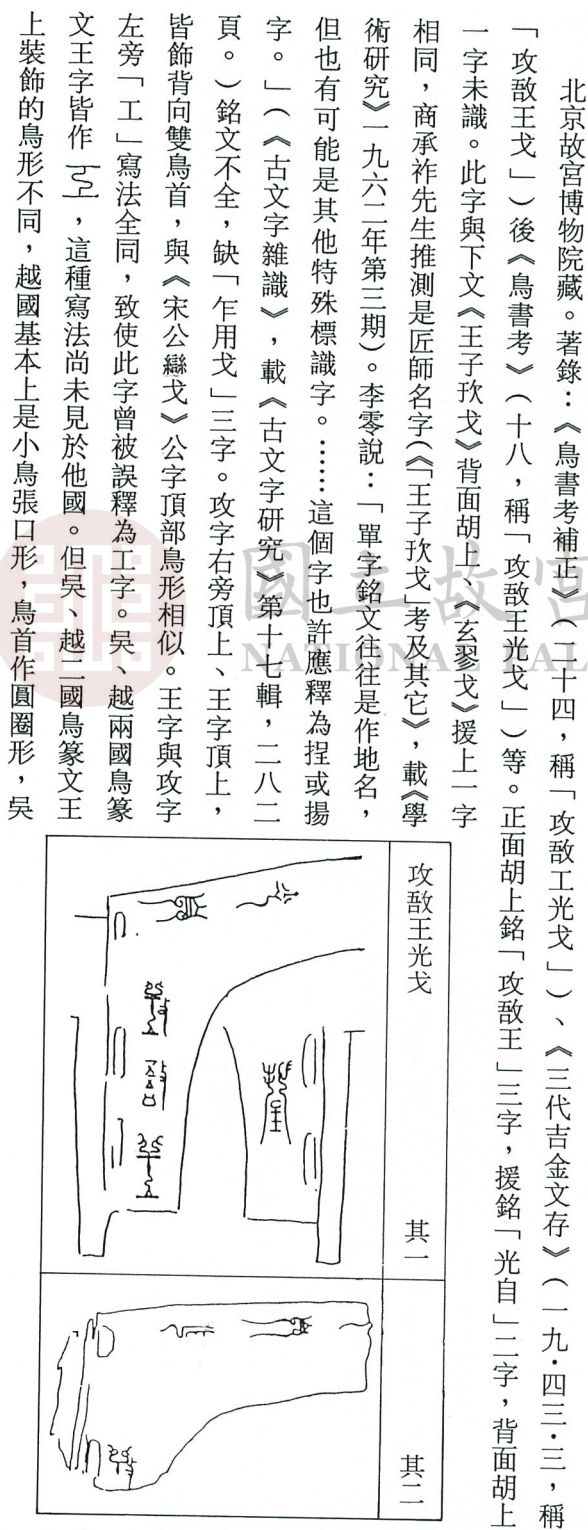 北京故宮博物院藏。著錄：《鳥書考補正》（二十四，稱「攻敔工光戈」）、《三代吉金文存》（一九·四三·三，稱
「攻敔王戈」）後《鳥書考》（十八，稱「攻敔王光戈」）等。正面胡上銘「攻敔王」三字，援銘「光自」二字，背面胡上
一字未識。此字與下文《王子㺬戈》背面胡上、《玄翏戈》援上一字
相同，商承祚先生推測是匠師名字（《「王子㺬戈」考及其它》，載《學
術研究》一九六二年第三期）。李零說：「單字銘文往往是作地名，
但也有可能是其他特殊標識字。……這個字也許應釋為捏或揚
字。」（《古文字雜識》，載《古文字研究》第十七輯，二八二
頁。）銘文不全，缺「乍用戈」三字。攻字右旁頂上、王字頂上，
皆飾背向雙鳥首，與《宋公䜌戈》公字頂部鳥形相似。王字與攻字
左旁「工」寫法全同，致使此字曾被誤釋為工字。吳、越兩國鳥篆
文王字皆作，這種寫法尚未見於他國。但吳、越二國鳥篆文王
上裝飾的鳥形不同，越國基本上是小鳥張口形，鳥首作圓圈形，吳
攻敔王光戈
其一
其二
國立故宮
NATIONAL PAL